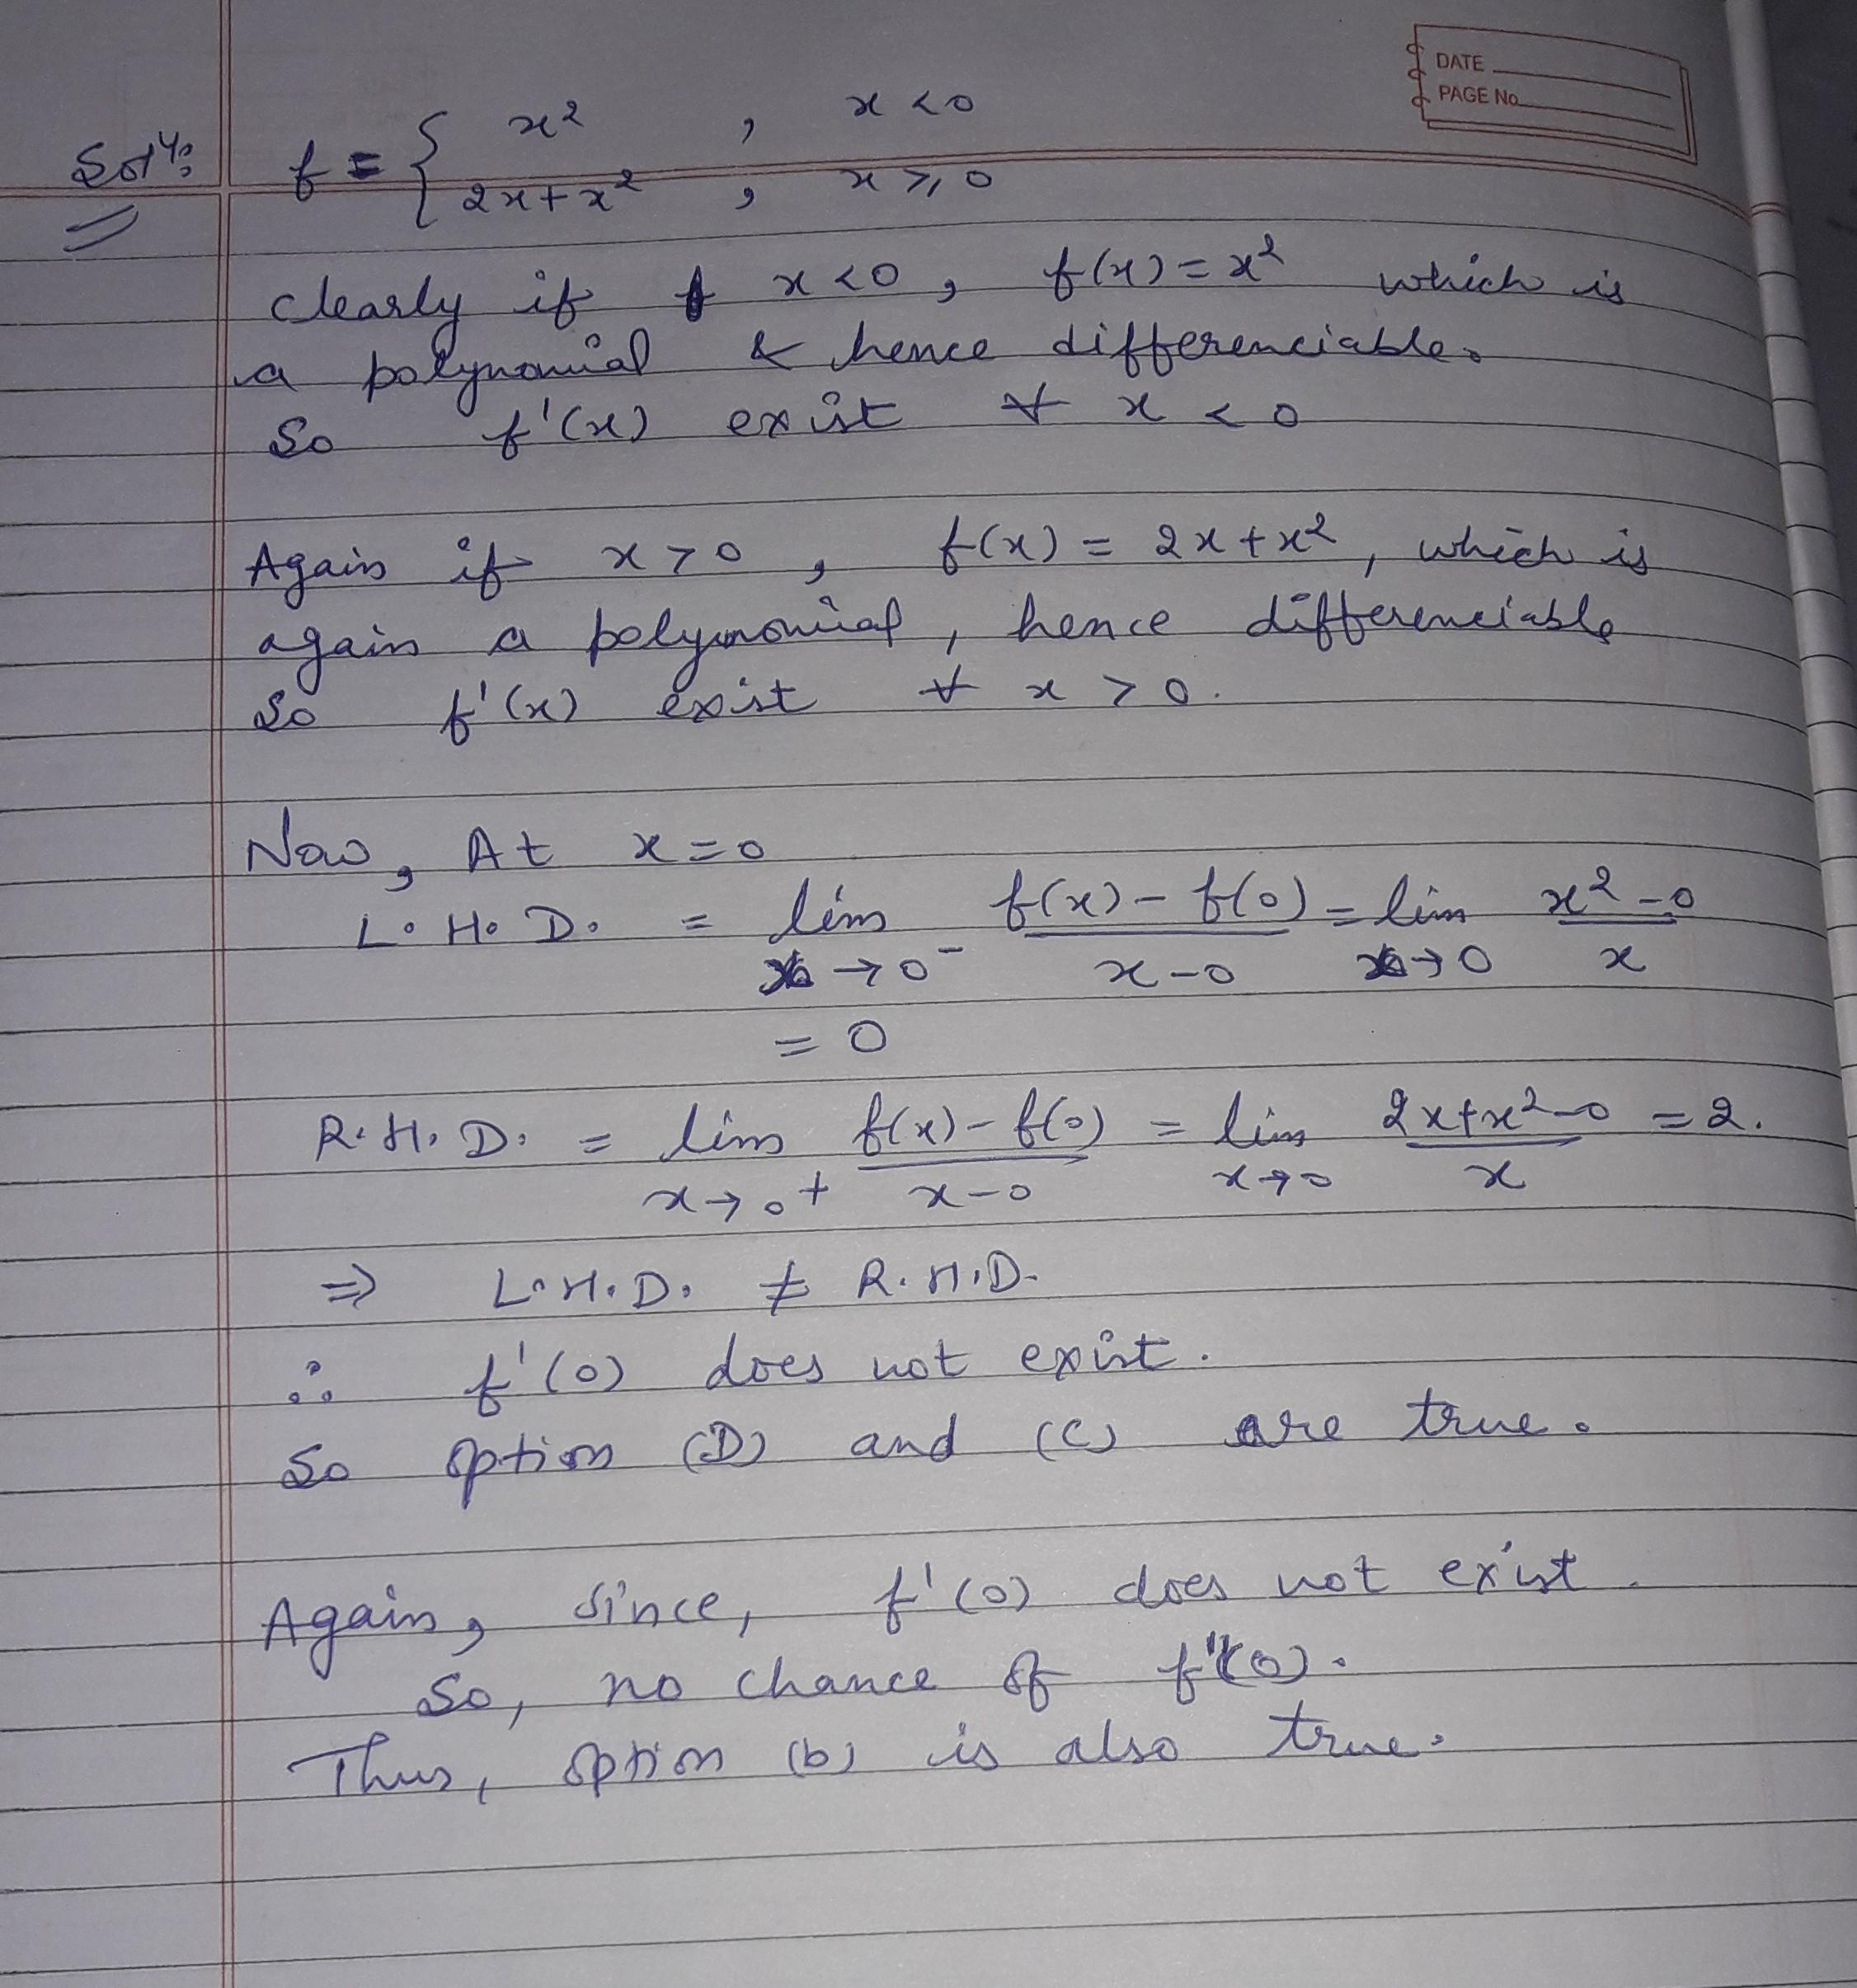 DATE
PAGE No.
Solⁿ: f = { x² , x < 0
2x+x² , x ≥ 0
clearly if x < 0 , f(x) = x² which is
a polynomial & hence differenciable.
So f'(x) exist ∀ x < 0
Again if x > 0 , f(x) = 2x + x² , which is
again a polynomial , hence differenciable
So f'(x) exist ∀ x > 0.
Now, At x = 0
L.H.D. = lim x→0⁻ f(x) - f(0) / x - 0 = lim x→0 x² - 0 / x
= 0
R.H.D. = lim x→0+ f(x) - f(0) / x - 0 = lim x→0 2x+x²-0 / x = 2.
⇒ L.H.D. ≠ R.H.D.
∴ f'(0) does not exist.
So option (D) and (C) are true.
Again, Since, f'(0) does not exist.
So, no chance of f''(0).
Thus, option (b) is also true.